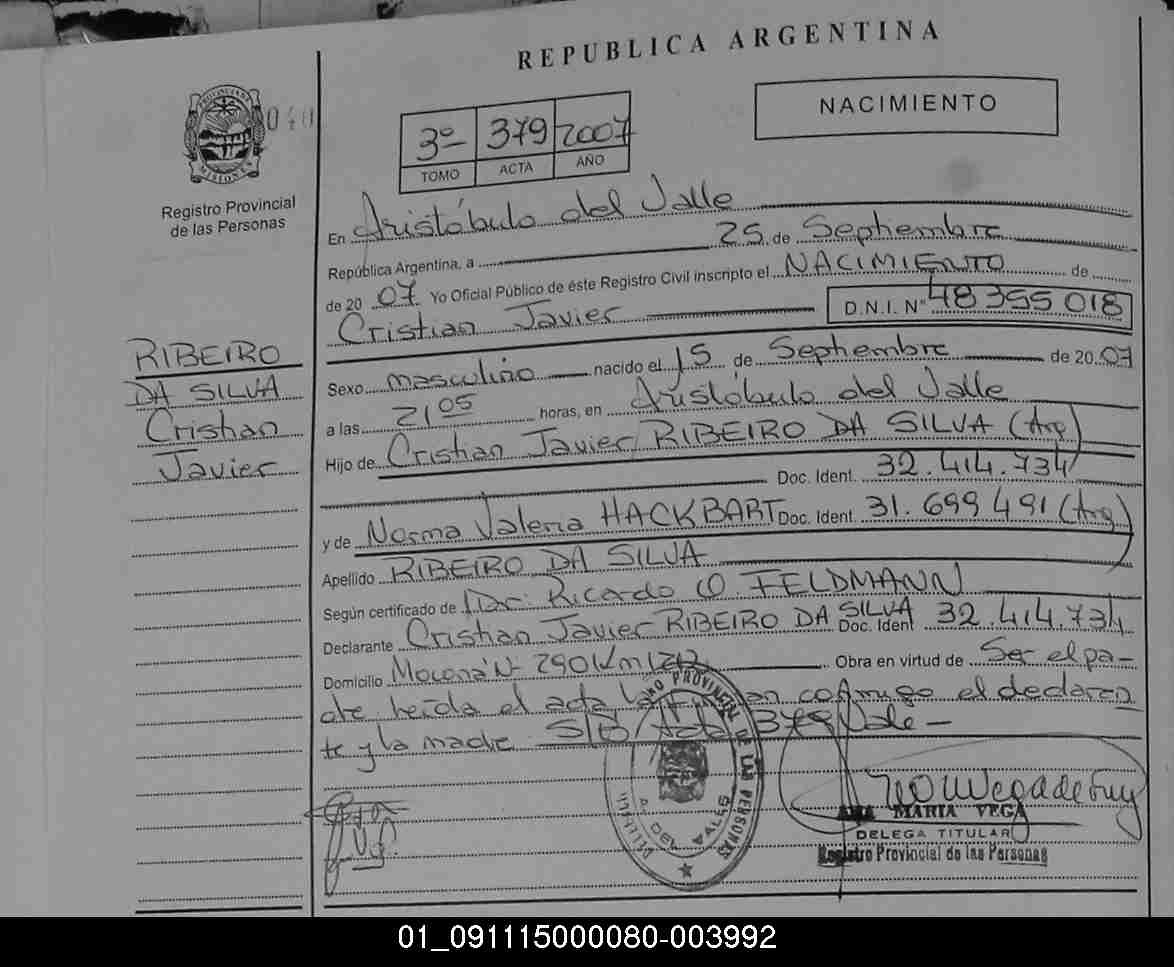 REPUBLICA ARGENTINA
NACIMIENTO
040
PROVINCIA DE MISIONES
Registro Provincial
de las Personas
3º 379 2007
TOMO ACTA AÑO
En Aristóbulo del Valle
República Argentina, a 25 de Septiembre
de 20 07 Yo Oficial Público de éste Registro Civil inscripto el NACIMIENTO de
Cristian Javier D.N.I. Nº 48 355 018
RIBEIRO
DA SILVA
Cristian
Javier
Sexo masculino nacido el 15 de Septiembre de 20 07
a las 21 05 horas, en Aristóbulo del Valle
Hijo de Cristian Javier RIBEIRO DA SILVA (Arg)
Doc. Ident. 32.414.734
y de Norma Valeria HACKBART Doc. Ident. 31.699 491 (Arg)
Apellido RIBEIRO DA SILVA
Según certificado de Dr. Ricardo O. FELDMANN
Declarante Cristian Javier RIBEIRO DA SILVA Doc. Ident 32.414.734
Domicilio Moconá Nº 290 Km 1212 Obra en virtud de Ser el pa-
dre leída el acta la conmigo el declaran
te y la madre. S/B/Acta 379 Vale -
ANA MARIA VEGA
DELEGA TITULAR
Registro Provincial de las Personas
REGISTRO PROVINCIAL DE LAS PERSONAS
A. DEL VALLE
01_091115000080-003992